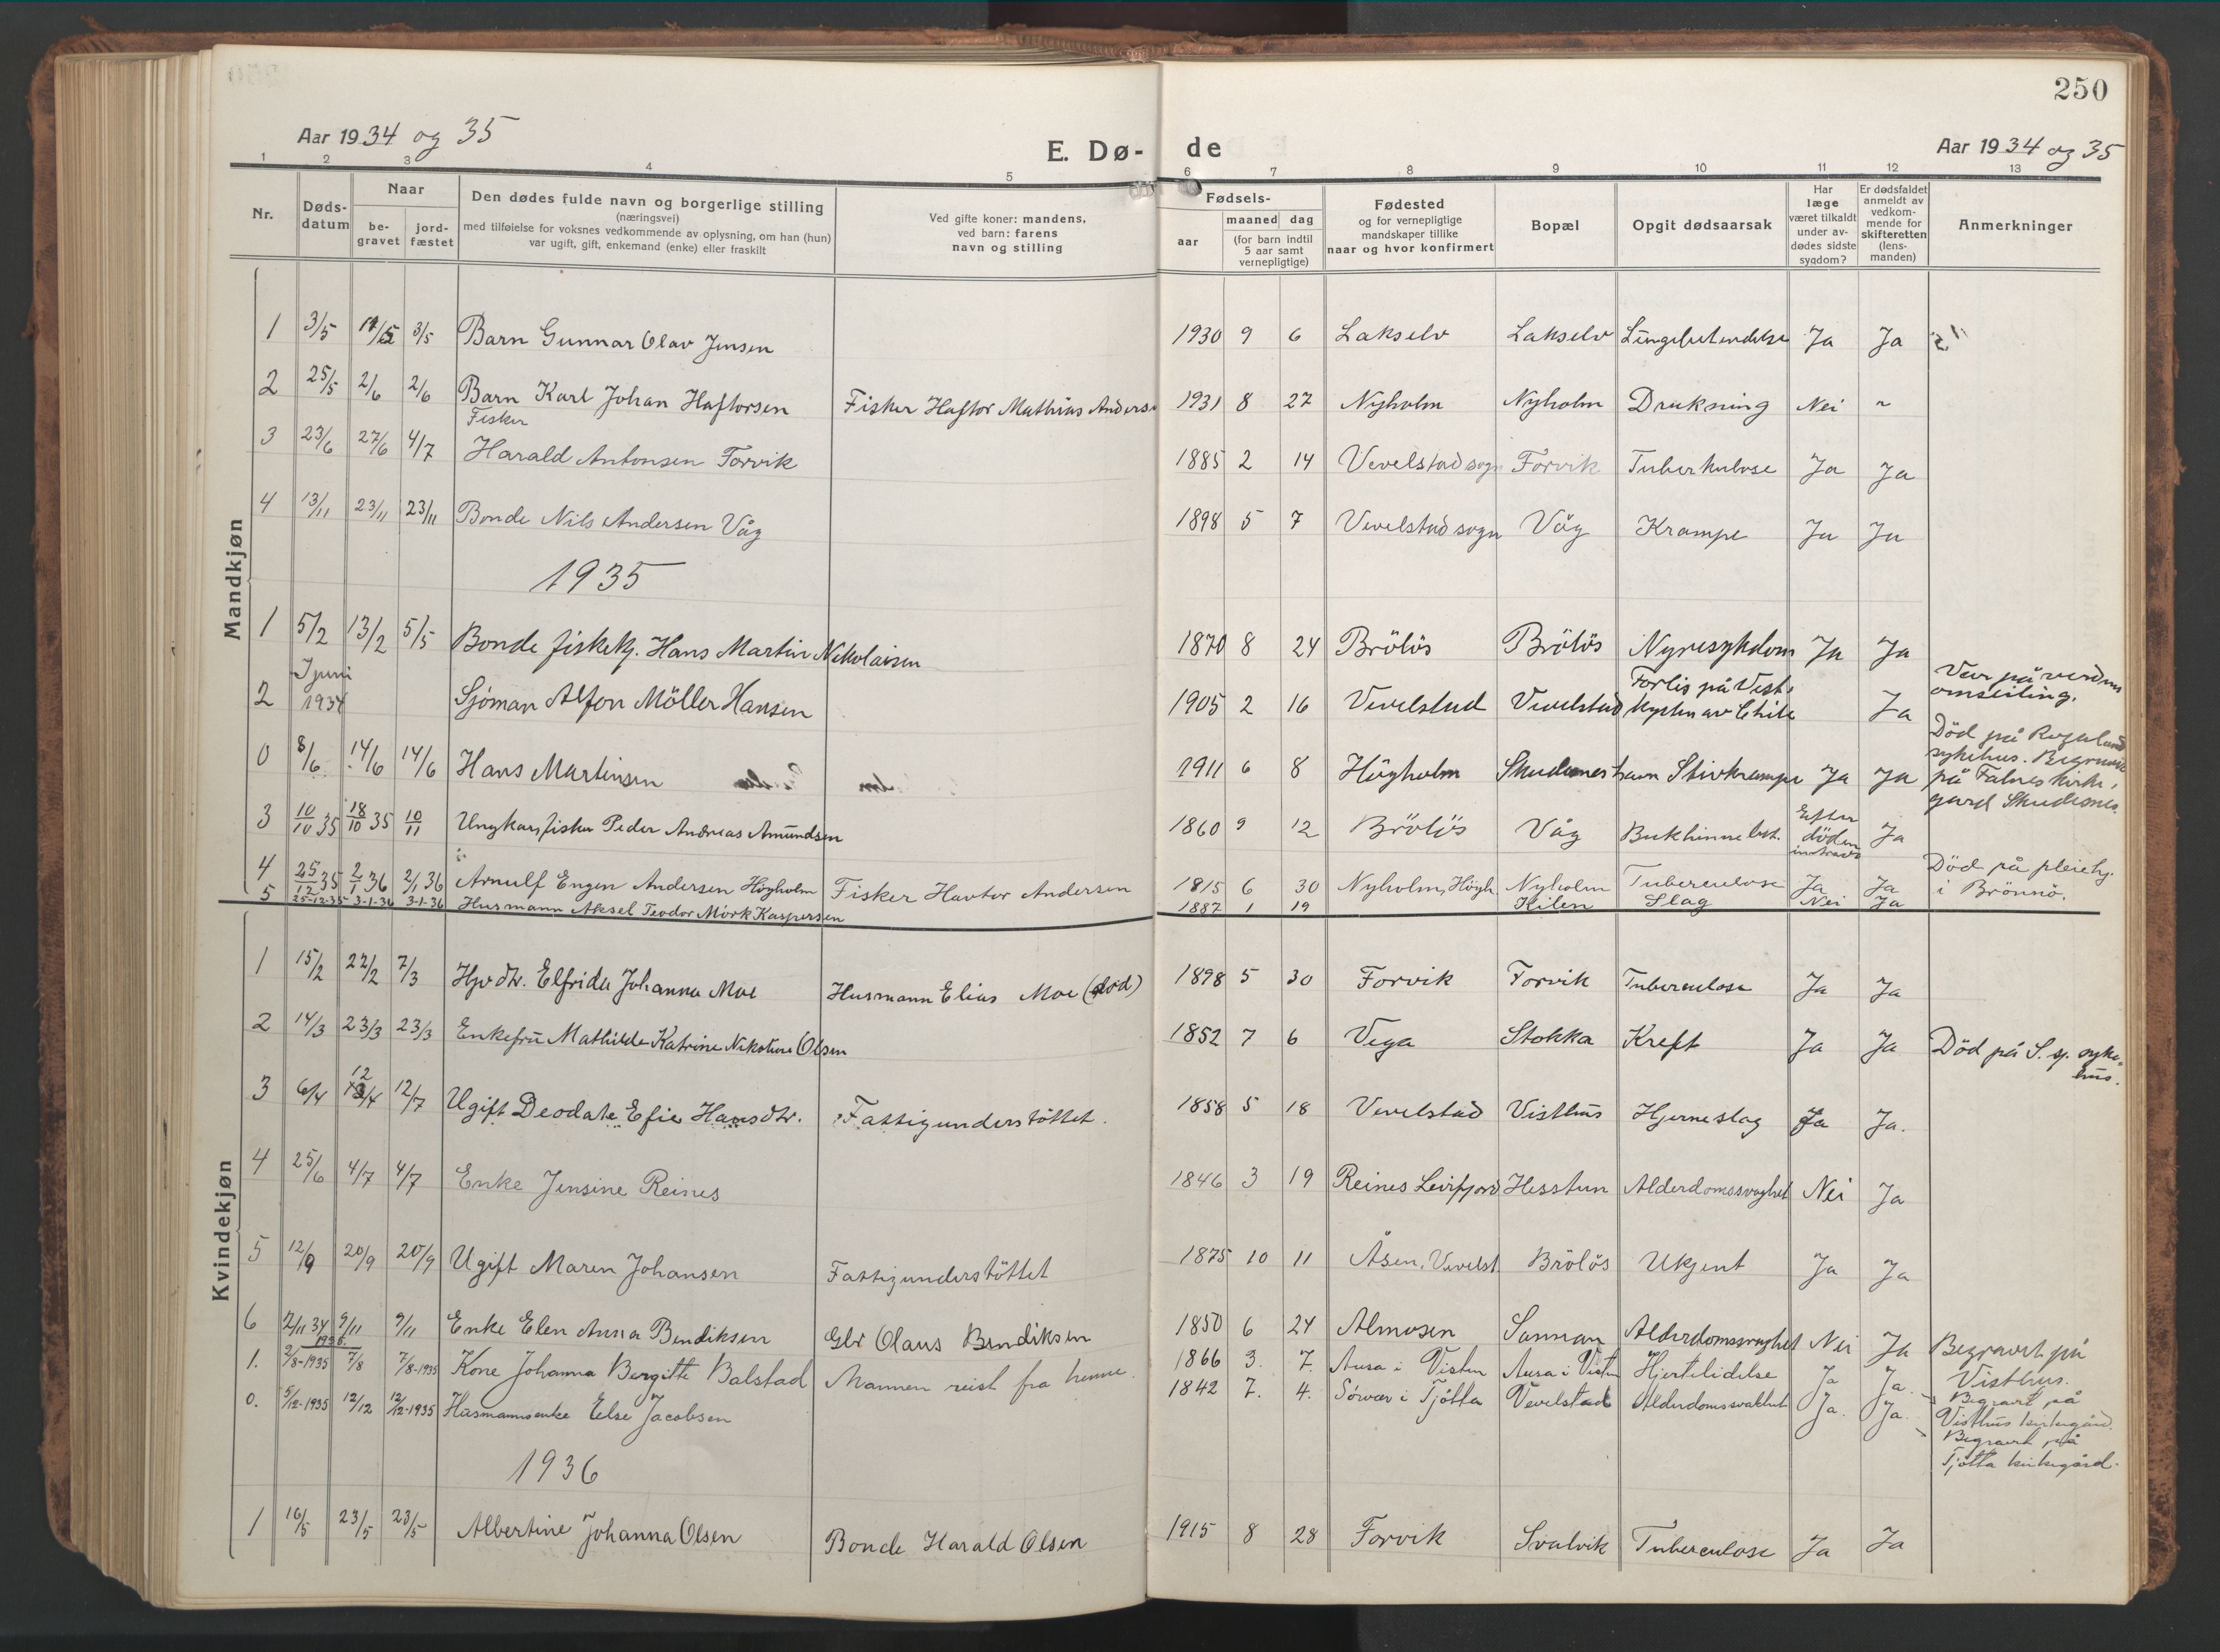 250
Aar 1934 og 35
E. Dø- de
Aar 1934 og 35
1 2 3 4 5 6 7 8 9 10 11 12 13
Nr.
Døds-
datum
Naar
be-
gravet
jord-
fæstet
Den dødes fulde navn og borgerlige stilling
(næringsvei)
med tilføielse for voksnes vedkommende av oplysning, om han (hun)
var ugift, gift, enkemand (enke) eller fraskilt
Ved gifte koner: mandens,
ved barn: farens
navn og stilling
Fødsels-
aar
maaned dag
(for barn indtil
5 aar samt
vernepligtige)
Fødested
og for vernepligtige
mandskaper tillike
naar og hvor konfirmert
Bopæl
Opgit dødsaarsak
Har
læge
været tilkaldt
under av-
dødes sidste
sygdom?
Er dødsfaldet
anmeldt av
vedkom-
mende for
skifteretten
(lens-
manden)
Anmerkninger
Mandkjøn
1 3/5 3/5 Barn Gunnar Olav Jensen 1930 9 6 Lakselv Lakselv Lungebetendelse Ja Ja
2 25/5 2/6 2/6 Barn Karl Johan Haftorsen Fisker Haftor Mathias Anders 1931 8 27 Nyholm Nyholm Drukning Nei ~
Fisker
3 23/6 27/6 4/7 Harald Antonsen Forvik 1885 2 14 Vevelstad sogn Forvik Tuberkulose Ja Ja
4 13/11 23/11 23/11 Bonde Nils Andersen Våg 1898 5 7 Vevelstad sogn Våg Krampe Ja Ja
1935
1 5/2 13/2 5/5 Bonde fisker Hans Martin Nikolaisen 1870 8 24 Brölös Brölös Nyresykdom Ja Ja
2 I juni
1934 Sjöman Alfon Möller Hansen 1905 2 16 Vevelstad Vevelstad Forlis på Vest-
kysten av Chile Ja Var på verdens
omseiling.
0 8/6 14/6 14/6 Hans Martinsen 1911 6 8 Högholm Skudeneshavn Stivkrampe Ja Ja Död på Rogaland
sykehus. Begravet
på Falnes kirke-
gard Skudesnes.
3 10/10 35 18/10 35 10/11 Ungkar, fisker Peder Andreas Amundsen 1860 9 12 Brölös Våg Bukhinnebet. Efter
döden
Ja
4 25/12 35 2/1 36 2/1 36 Arnulf Engen Andersen Högholm Fisker Havtor Andersen 1815 6 30 Nyholm, Högh Nyholm Tuberculose Ja Ja Död på pleiehj.
i Brönnö.
5 25-12-35 3-1-36 3-1-36 Husmann Aksel Teodor Mörk Kaspersen 1887 1 19 Kilen Slag Nei Ja
Kvindekjøn
1 15/2 22/2 7/3 Hjv dtr. Elfrida Johanna Moe Husmann Elias Moe (död) 1898 5 30 Forvik Forvik Tuberculose Ja Ja
2 14/3 23/3 23/3 Enkefru Mathilde Katrine Nikoline Olsen 1852 7 6 Vega Stokka Kreft Ja Ja Död på S. sj. syke-
hus.
3 6/4 12/4 12/7 Ugift Deodate Efie Hansdtr. Fattigunderstöttet. 1858 5 18 Vevelstad Visthus Hjerneslag Ja Ja.
4 25/6 4/7 4/7 Enke Jensine Reines 1846 3 19 Reines Leirfjord Hesstun Alderdomssvaghet Nei Ja
5 12/9 20/9 20/9 Ugift Maren Johansen Fattigunderstöttet 1875 10 11 Åsen, Vevelst. Brölös Ukjent Ja Ja
6 2/11 34 9/11 9/11 Enke Elen Anna Bendiksen Gbr Olaus Bendiksen 1850 6 24 Almosen Sannan Alderdomssvaghet Nei Ja Begravet på
Visthus.
1935.
1. 2/8-1935 7/8 7/8-1935 Kone Johanna Bergitte Balstad Mannen reist fra henne. 1866 3. 7. Ausa i Visten Ausa i Visten Hjertelidelse Ja Ja. Begravet på
Visthus kirkegård
0. 5/12-1935 12/12 12/12-1935 Husmannsenke Else Jacobsen 1842 7. 4. Sörvær i Tjötta Vevelstad Alderdomssvakhet Ja. Ja. Begravet på
Tjötta kirkegård.
1936
1 16/5 23/5 23/5 Albertine Johanna Olsen Bonde Harald Olsen 1915 8 28 Forvik Svalvik Tuberculose Ja Ja